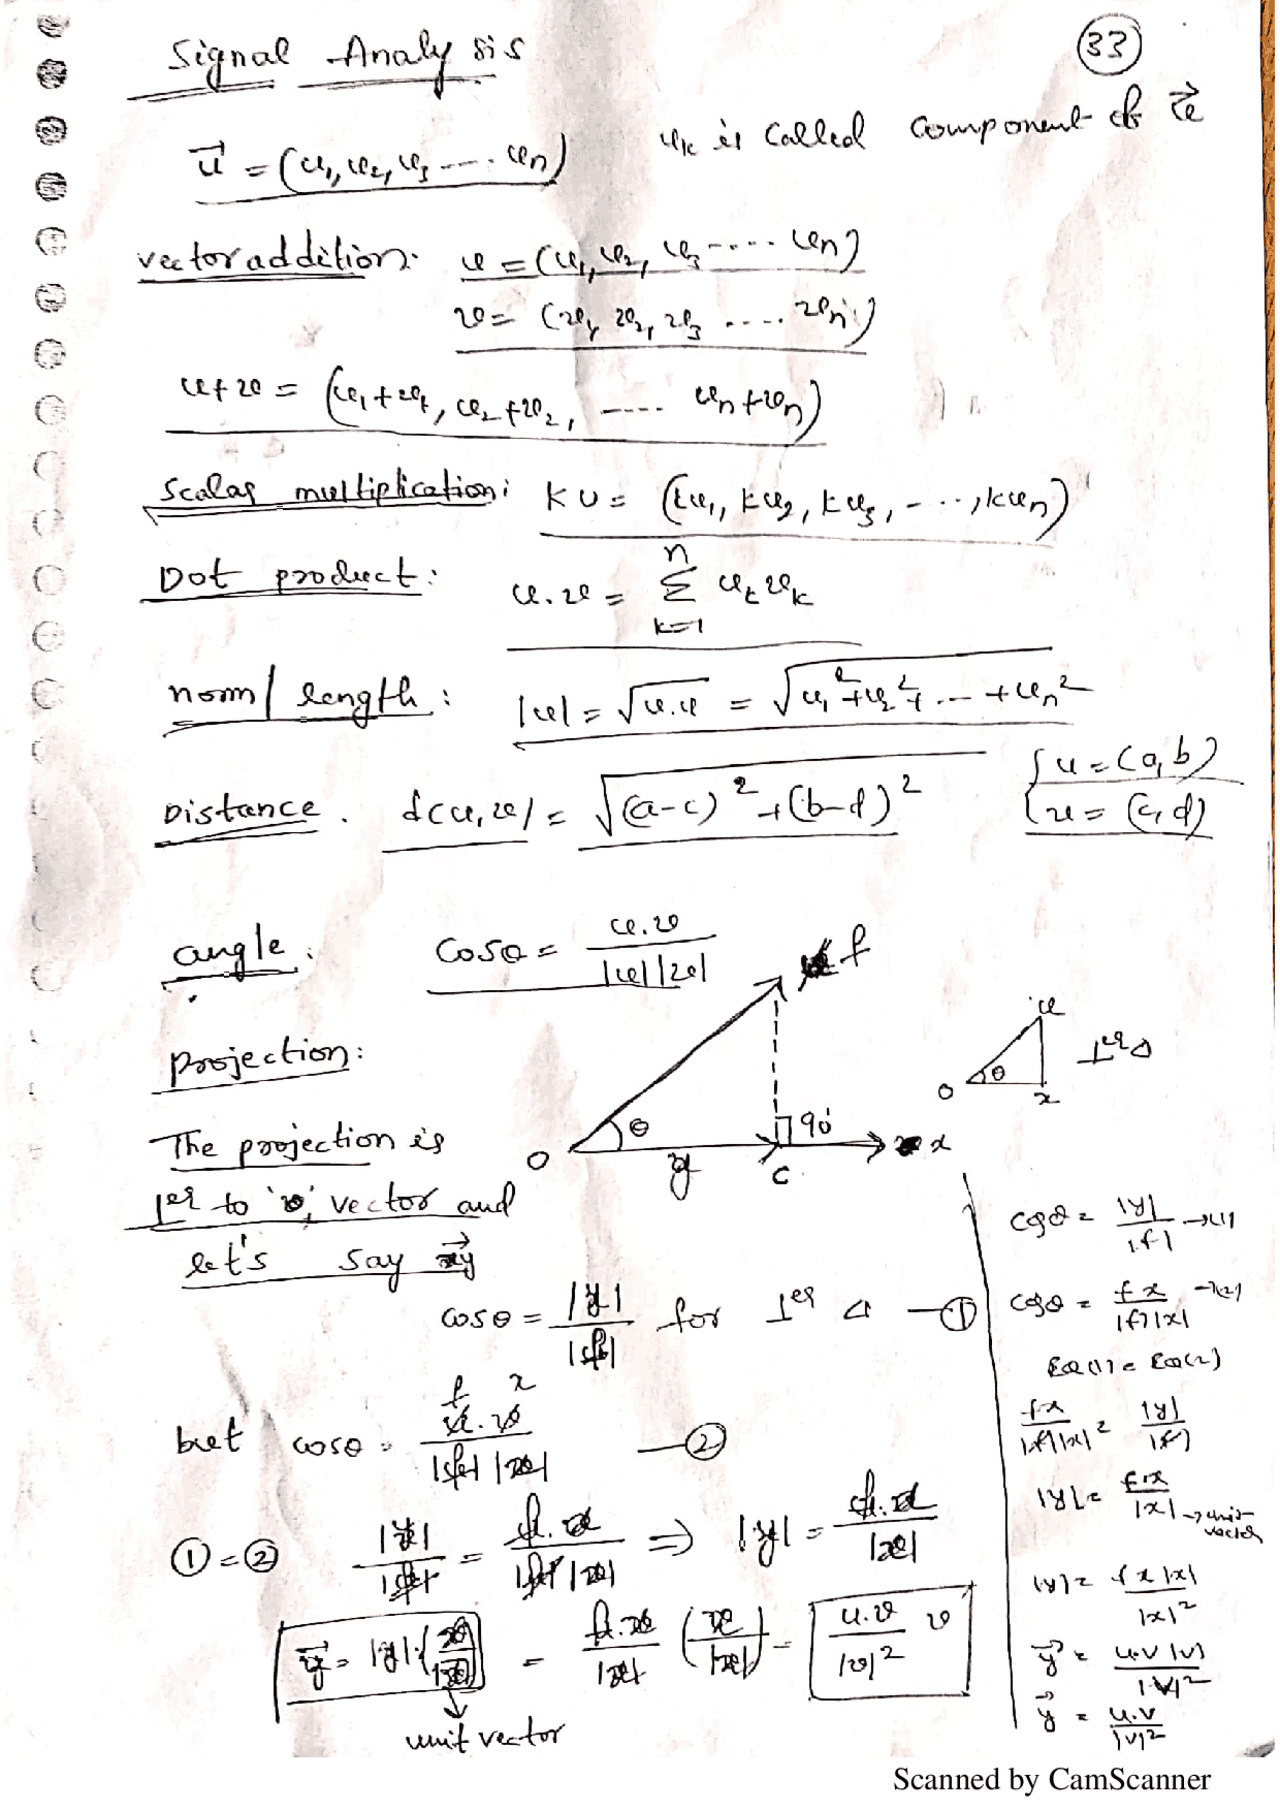 Signal Analysis
33
u⃗ = (u₁, u₂, u₃ ---- uₙ)
uₖ is called component of u⃗
vector addition:
u = (u₁, u₂, u₃ ----- uₙ)
v = (v₁, v₂, v₃ ..... vₙ)
u+v = (u₁+v₁, u₂+v₂, ---- uₙ+vₙ)
Scalar multiplication: KU = (ku₁, ku₂, ku₃, - ..., kuₙ)
Dot product: u.v = Σ_{k=1}^{n} uₖvₖ
norm/ length: |u| = √u.u = √u₁²+u₂²+ --- +uₙ²
Distance. d(u,v) = √(a-c)²+(b-d)²
{u = (a,b)
v = (c,d)
angle: cosθ = u.v / |u||v|
f
projection:
u
θ
O
x
⊥er Δ
θ
O
y
90°
C
x
The projection is
⊥er to 'v' vector and
let's say y⃗
cosθ = |y| / |f| for ⊥er Δ —①
but cosθ = f.x / |f||x| —②
①=② |y| / |f| = f.x / |f||x| ⇒ |y| = f.x / |x|
y⃗ = |y|.(x / |x|) = f.x / |x| (x / |x|) = u.v / |v|² v
unit vector
cosθ = |y| / |f| →(1)
cosθ = f x / |f||x| →(2)
EQ(1) = EQ(2)
f x / |f||x| = |y| / |f|
|y| = f.x / |x| → unit vector
|y| = f x |x| / |x|²
y⃗ = u.v |v| / |v|²
y⃗ = u.v / |v|²
Scanned by CamScanner